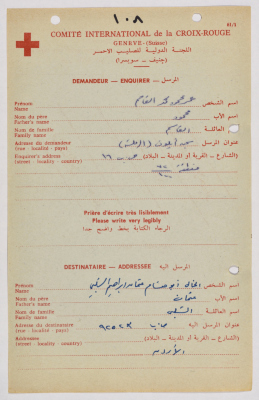 ١٠٨
61/2
COMITÉ INTERNATIONAL de la CROIX-ROUGE
GENÈVE - (Suisse)
اللجنة الدولية للصليب الاحمر
(جنيف - سويسرا)
DEMANDEUR - ENQUIRER - المرسل
Prénom
Name
اسم الشخص
محمود محمد القاسم
Nom du père
Father's name
اسم الأب
محمود
Nom de famille
Family name
العائلة
القاسم
Adresse du demandeur
(rue - localité - pays)
عنوان المرسل
Enquirer's address
(street - locality - country)
(الشارع - القرية أو المدينة - البلاد)
Prière d'écrire très lisiblement
Please write very legibly
الرجاء الكتابة بخط واضح جدا
DESTINATAIRE - ADDRESSEE - المرسل اليه
Prénom
Name
اسم الشخص
Nom du père
Father's name
اسم الأب
عثمان
Nom de famille
Family name
العائلة
Adresse du destinataire
(rue - localité - pays)
عنوان المرسل اليه
Addressee
(street - locality - country)
(الشارع - القرية أو المدينة - البلاد)
الأردن